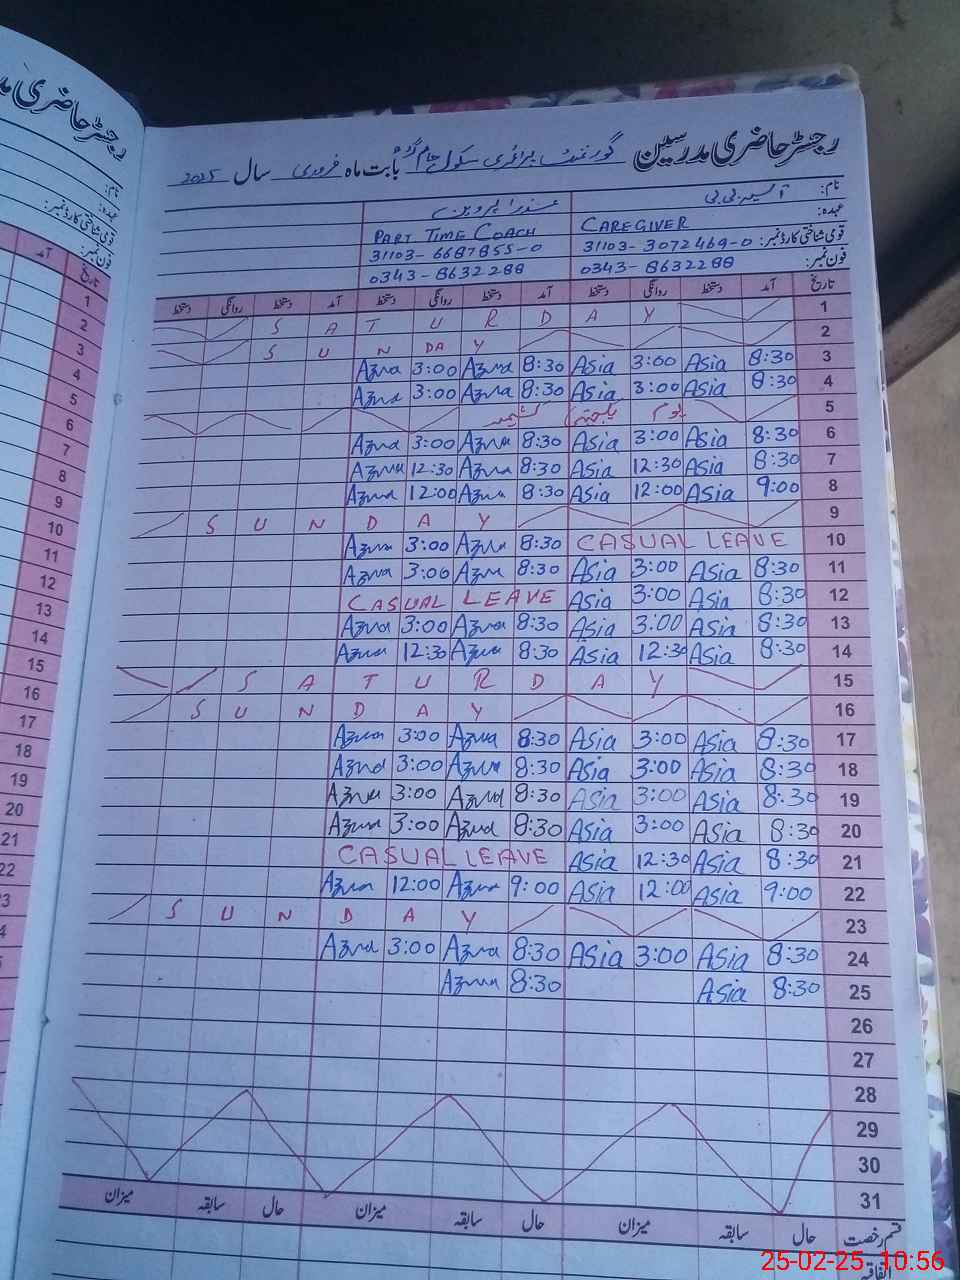 رجسٹر حاضری مدرسین گورنمنٹ پرائمری سکول بابت ماہ فروری سال 2025
نام: آسیہ بی بی عذرا پروین
عہدہ: CAREGIVER PART TIME COACH
قومی شناختی کارڈ نمبر: 31103-3072469-0 31103-6687855-0
فون نمبر: 0343-8632288 0343-8632288
تاریخ آمد دستخط روانگی دستخط آمد دستخط روانگی دستخط آمد دستخط روانگی دستخط
1 SATURDAY
2 SUNDAY
3 8:30 Asia 3:00 Asia 8:30 Azra 3:00 Azra
4 8:30 Asia 3:00 Asia 8:30 Azra 3:00 Azra
5 یوم یکجہتی کشمیر
6 8:30 Asia 3:00 Asia 8:30 Azra 3:00 Azra
7 8:30 Asia 12:30 Asia 8:30 Azra 12:30 Azra
8 9:00 Asia 12:00 Asia 8:30 Azra 12:00 Azra
9 SUNDAY
10 CASUAL LEAVE 8:30 Azra 3:00 Azra
11 8:30 Asia 3:00 Asia 8:30 Azra 3:00 Azra
12 8:30 Asia 3:00 Asia CASUAL LEAVE
13 8:30 Asia 3:00 Asia 8:30 Azra 3:00 Azra
14 8:30 Asia 12:30 Asia 8:30 Azra 12:30 Azra
15 SATURDAY
16 SUNDAY
17 8:30 Asia 3:00 Asia 8:30 Azra 3:00 Azra
18 8:30 Asia 3:00 Asia 8:30 Azra 3:00 Azra
19 8:30 Asia 3:00 Asia 8:30 Azra 3:00 Azra
20 8:30 Asia 3:00 Asia 8:30 Azra 3:00 Azra
21 8:30 Asia 12:30 Asia CASUAL LEAVE
22 9:00 Asia 12:00 Asia 9:00 Azra 12:00 Azra
23 SUNDAY
24 8:30 Asia 3:00 Asia 8:30 Azra 3:00 Azra
25 8:30 Asia 8:30 Azra
26
27
28
29
30
31
قسم رخصت حال سابقہ میزان حال سابقہ میزان حال سابقہ میزان
اتفاقیہ
رجسٹر حاضری
نام:
عہدہ:
قومی شناختی کارڈ نمبر:
فون نمبر:
تاریخ آمد
1
2
3
4
5
6
7
8
9
10
11
12
13
14
15
16
17
18
19
20
21
22
25-02-25 10:56